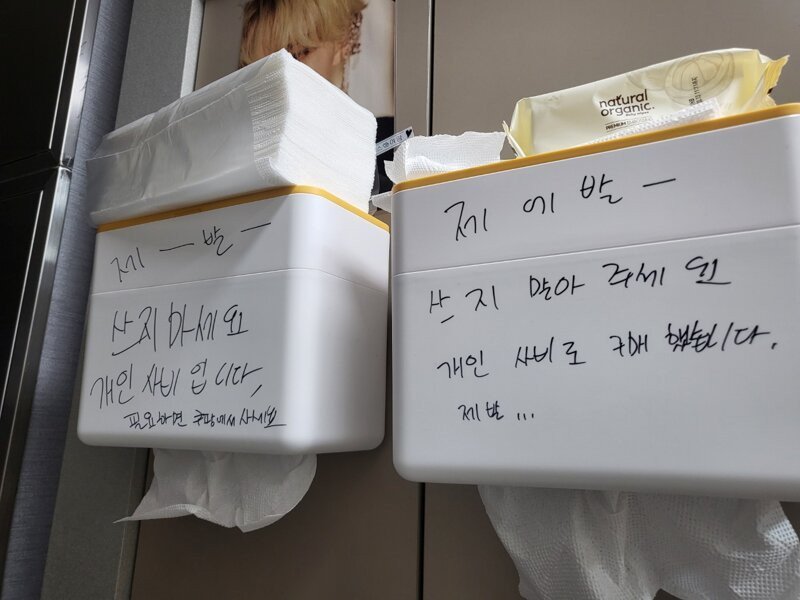 제 ー 발 ー
쓰지 마세요
개인 사비 입니다,
필요하면 쿠팡에서 사세요
natural
organic.
PREMIUM
제 에 발 ー
쓰지 말아 주세요
개인 사비로 구매 했습니다.
제발 ...